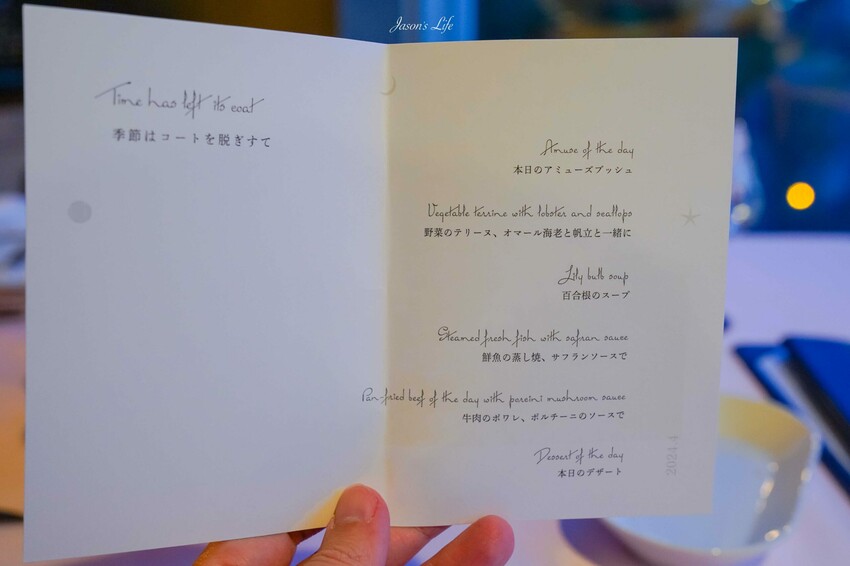 Jason's Life
Time has left its coat
季節はコートを脱ぎすて
Amuse of the day
本日のアミューズブッシュ
Vegetable terrine with lobster and scallops
野菜のテリーヌ、オマール海老と帆立と一緒に
Lily bulb soup
百合根のスープ
Steamed fresh fish with safran sauce
鮮魚の蒸し焼、サフランソースで
Pan-fried beef of the day with porcini mushroom sauce
牛肉のポワレ、ポルチーニのソースで
Dessert of the day
本日のデザート
2024.4